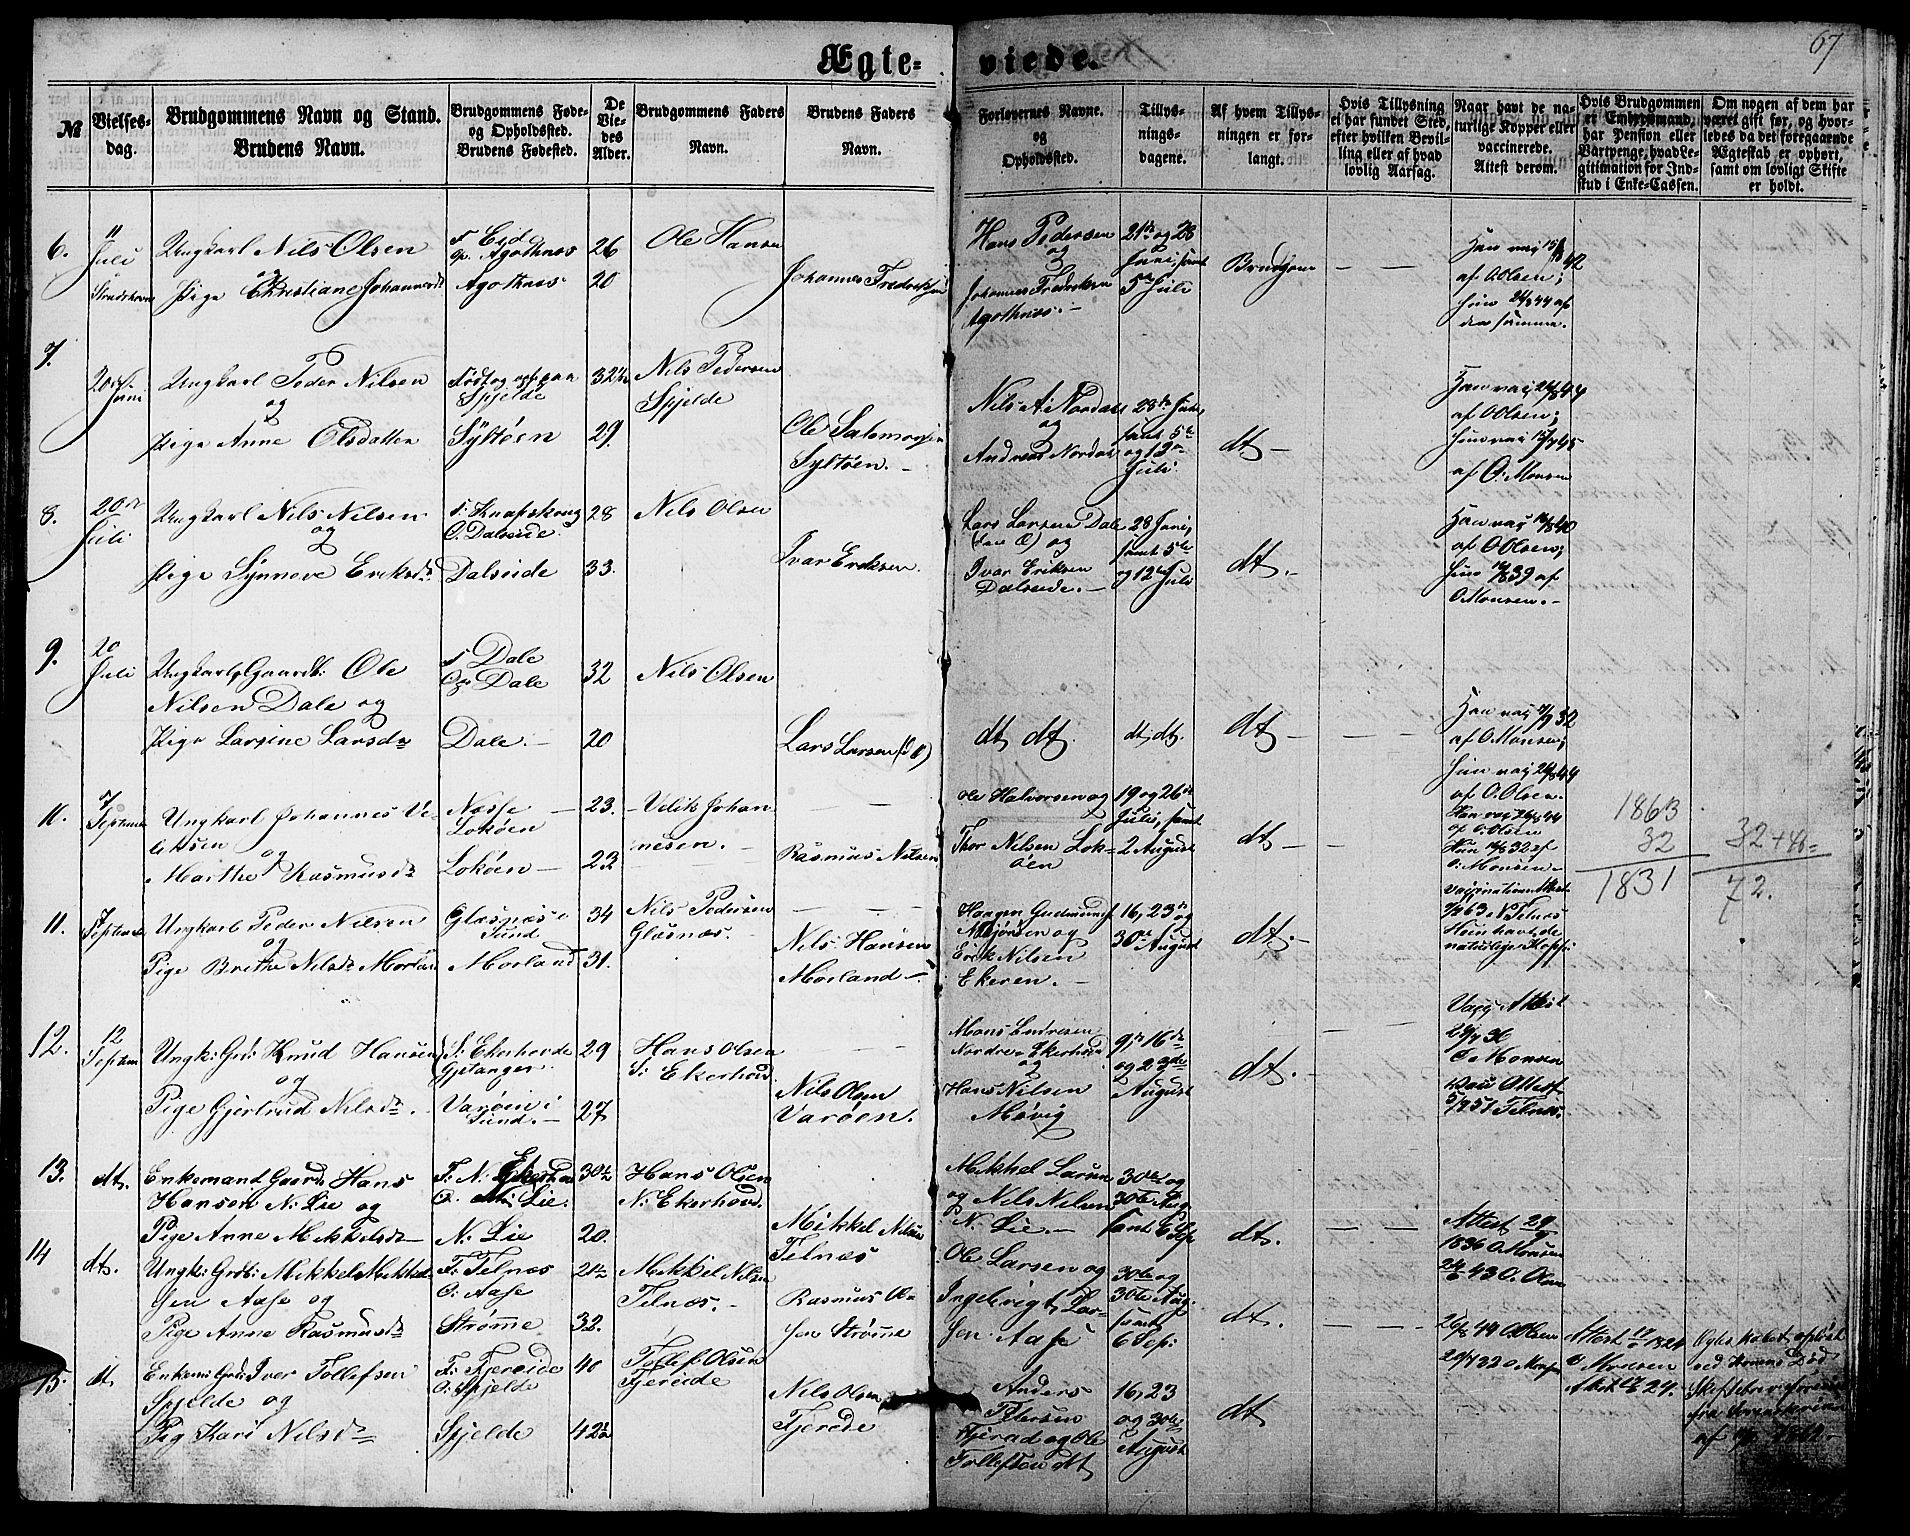 67
Ægte= viede.
№
Vielses-
dag.
Brudgommens Navn og Stand.
Brudens Navn.
Brudgommens Føde-
og Opholdssted.
Brudens Fødested.
De
Vie-
des
Alder.
Brudgommens Faders
Navn.
Brudens Faders
Navn.
Forlovernes Navne.
og
Opholdssted.
Tillys-
nings-
dagene.
Af hvem Tillys-
ningen er for-
langt.
Hvis Tillysning
ei har fundet Sted,
efter hvilken Bevil-
ling eller af hvad
lovlig Aarsag.
Naar havt de na-
turlige Kopper eller
vaccinerede.
Attest derom.
Hvis Brudgommen
er Embedsmand,
har Pension eller
Vartpenge, hvad Le-
gitimation for Ind-
skud i Enke-Cassen.
Om nogen af dem har
været gift før, og hvor-
ledes da det foregaaende
Ægteskab er ophørt,
samt om lovligt Skifte
er holdt.
6.
11
Juli
Ungkarl Nils Olsen
og
Pige Christiane Johannesd
f. Eid
op. Agothnes
Agothnes
26
20
Ole Hansen
Johannes Fredriksen
Hans Pedersen
og
Johannes Fredriksen
Agothnes. -
21de og 28
Juni, samt
5te Juli
Brudgom
Han vax 15/8 42
af O Olsen;
hun 24/8 44 af
den samme.
7.
20de
Juni
Ungkarl Peder Nilsen
og
Pige Anne Olsdatter
Født og op paa
Spjelde
Syltøen
32½
29.
Nils Pedersen
Spjelde
Ole Salomonsen
Syltøen. -
Nils A. Nordal
og
Andreas Nordal
28de Juni,
samt 5te
og 12te
Juli
dt -
Han vax 24/8 44
af O Olsen;
hun vax 15/7 45
af O. Monsen
8.
20de
Juli
Ungkarl Nils Nilsen
og
Pige Synneve Eriksd
f. Knapskoug
O. Dalseide
Dalseide
28
33.
Nils Olsen
Ivar Eriksen
Lars Larsen Dale
(den Æ) og
Ivar Eriksen
Dalseide. -
28 Juni,
samt 5te
og 12te Juli
dt. -
Han vax 14/8 40
af O Olsen;
hun 39 af
O. Monsen. -
9.
20
Juli
Ungkarl, Gaardb: Ole
Nilsen Dale og
Pige Larsine Larsd
f Dale
Op Dale
Dale. -
32
20
Nils Olsen
Lars Larsen
dt dt
dt, dt.
dt -
Han vax 7/7 32
af O. Monsen;
hun vax 24/8 44
af O. Olsen.
10.
7
September
Ungkarl Johannes Ve-
liksen
og
Marthe Rasmusd
Nesse -
Lokøen
Lokøen -
23.
23
Velik Johan
nesen. -
Rasmus Nilsen
Ole Halvorsen og
Thor Nilsen Lok=
øen
19 og 26de
Julis, samt
2 August
dt -
Han vax 24/8 44
af O: Olsen
Hun 14/8 32 af
O: Monsen
1863
32
1831
32+40=
72.
11.
7
September
Ungkarl Peder Nilsen
og
Pige Brithe Nilsd Morland
Glæsnæs i
Sund
Morland
34
31.
Nils Pedersen
Glæsnæs. -
Nils Hansen
Morland -
Haagen Gudmunds
og
Erik Nilsen
Ekeren. -
16, 23de og
30te August
dt. -
Vaxinations Attest
63 N Telnæs
Hun havt de
naturlige Kopper
12.
12
Septem
Ungk: Grd: Knud Hansen
og
Pige Gjertrud Nilsd.
S: Ekerhovde
Gjetanger
Varøen i
Sund. -
29
27
Hans Olsen
S: Ekerhovd
Nils Olsen
Varøen.
Mons Endresen
Nordre Ekerhovd
og
Hans Nilsen
Møvig
9de 16de
og 23de
August
dt. -
Vaxs Attest
36
O Monsen
Vax Attest
51 Telnæs.
13.
dt.
Enkemand Gaardb Hans
Hansen N. Lie og
Pige Anne Mikkelsd -
F. N. Ekerhovd
O. N: Lie.
N. Lie
30½
20.
Hans Olsen
N: Ekerhovd.
Mikkel Nilsen
Telnæs
Mikkel Larsen
og Nils Nilsen
N. Lie. -
30te og
30te Aug.
samt 6 Sep
dt.
Attest 29
1836 O. Monsen
43 O. Olsen
14
dt.
Ungk: Grdb: Mikkel Mikkel-
sen Aase og
Pige Anne Rasmusd
F: Telnæs
O: Aase
Strømme
21½
32.
Mikkel Nilsen
Telnæs. -
Rasmus Ol-
sen Strømme
Ole Larsen og
Ingebrigt Lar-
sen Aase
30te og
30te Aug.
samt
6 Sep:
dt.
26/8 44 O Olsen
32 O. Monsen
15.
dt
Enkem: Grdb: Iver Tollefsen
Spjelde og
Pig Kari Nilsd
F: Fjereide
O: Spjelde
Spjelde
40
42½
Tollef: Olsen
Fjereide
Nils Olsen
Fjereide
Anders
Petersen
Fjereid og Ole
Tollefsen dt
16, 23
og 30te
August
dt
Attest 1824
O Monsen
Attest 24.
Ægteskabet opløst
ved Konens Død